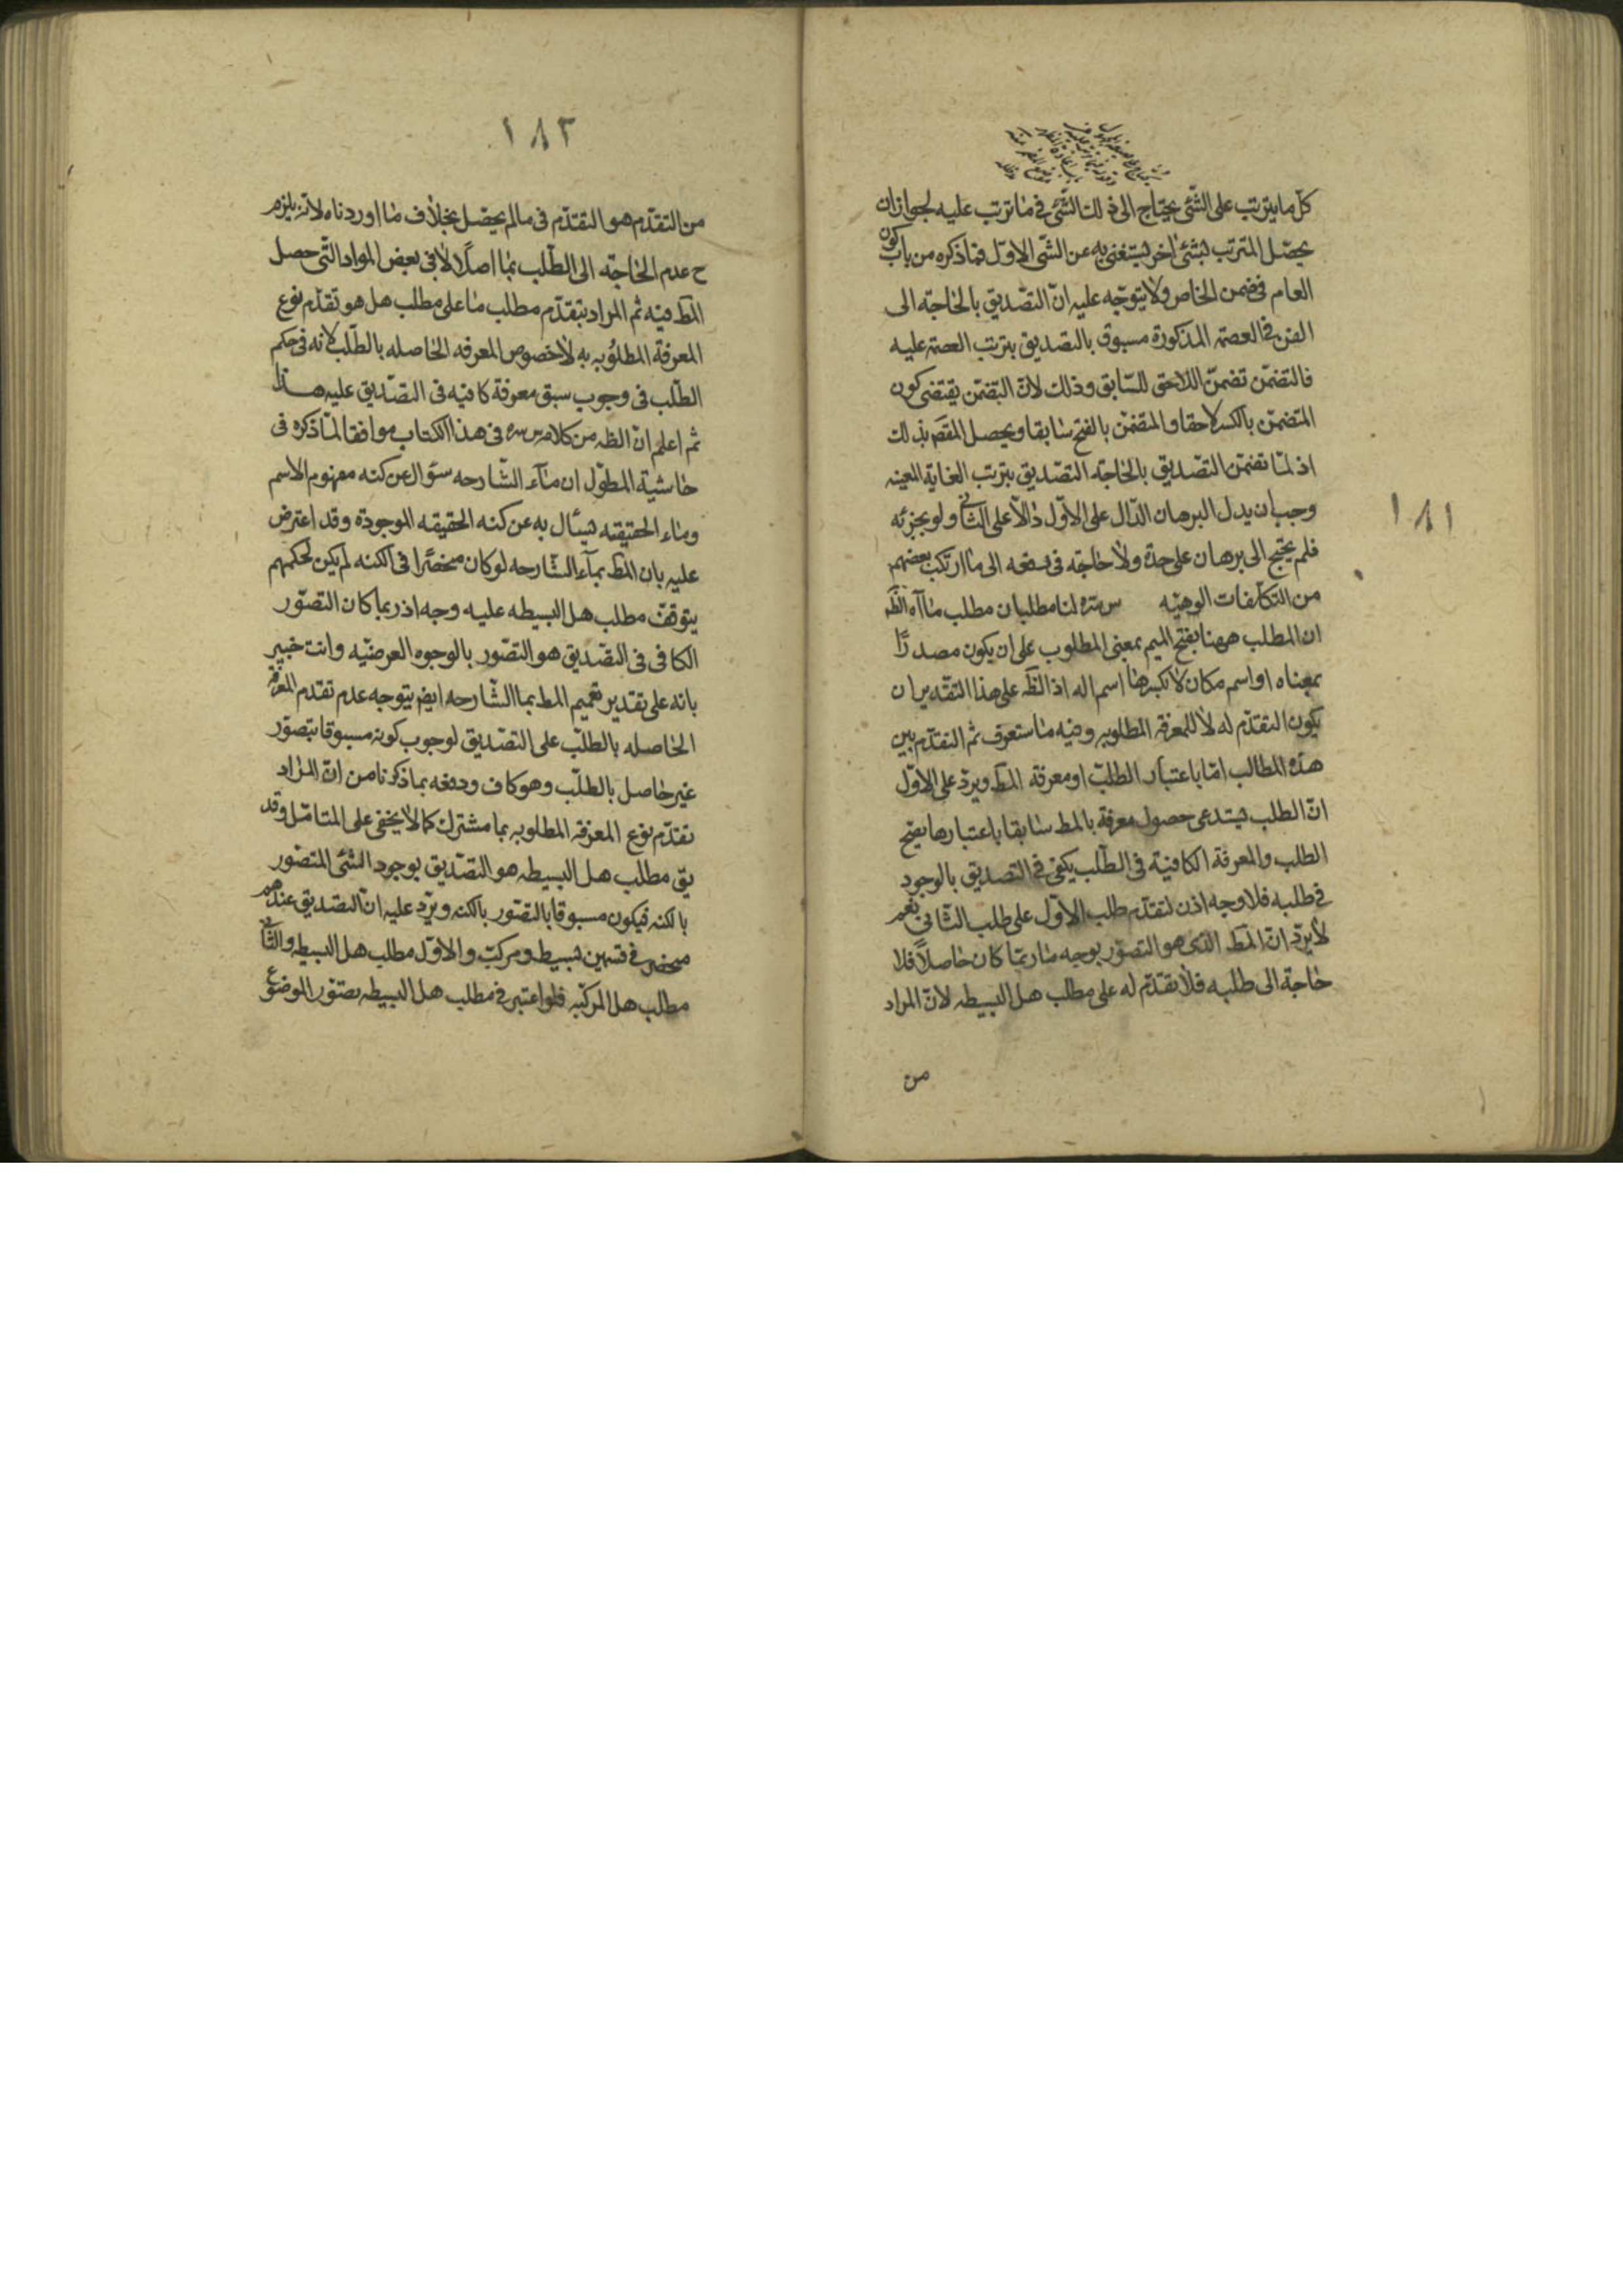 كل ما يترتب على الشئ يحتاج الى ذلك الشئ في ما ترتب عليه لجواز ان
يحصل المترتب بشئ اخر يستغنى به عن الشئ الاول فما ذكره من باب كون
العام في ضمن الخاص ولا يتوجه عليه ان التصديق بالحاجة الى
الفن في العصمة المذكورة مسبوق بالتصديق بترتب العصمة عليه
فالتضمن تضمن اللاحق للسابق وذلك لان التضمن يقتضى كون
المتضمن بالكسر لاحقا و المتضمن بالفتح سابقا ويحصل المقصم بذلك
اذ لما تضمن التصديق بالحاجة التصديق بترتب الغاية المعينه
وجب ان يدل البرهان الدال على الاول دالا على الثاني ولو بجزئه
فلم يحتج الى برهان على حدة ولا حاجة فى دفعه الى ما ارتكب بعضهم
من التكلفات الوهنيه س سره لنا مطلبان مطلب ما آه الظ
ان المطلب ههنا بفتح الميم بمعنى المطلوب على ان يكون مصدرًا
بمعناه او اسم مكان لا بكسرها اسم اله اذ الظ على هذا التقدير ان
يكون التقدم له لا للمعرفة المطلوبه وفيه ما ستعرف ثم التقدم بين
هذه المطالب اما باعتبار الطلب او معرفة المط ويرد على الاول
ان الطلب يستدعى حصول معرفة بالمط سابقا باعتبارها يصح
الطلب والمعرفة الكافية فى الطلب يكفى فى التصديق بالوجود
في طلبه فلا وجه اذن لتقدم طلب الاول على طلب الثانى نعم
لا يرد ان المط الذى هو التصور بوجه ما ربما كان حاصلا فلا
حاجة الى طلبه فلا تقدم له على مطلب هل البسيطه لان المراد
من
١٨١
١٨٢
من التقدم هو التقدم فى ما لم يحصل بخلاف ما اوردناه لانه يلزم
ح عدم الحاجة الى الطلب بما اصلا لا فى بعض المواد التى حصل
المط فيه ثم المراد بتقدم مطلب ما على مطلب هل هو تقدم نوع
المعرفة المطلوبه به لا خصوص المعرفه الحاصله بالطلب لانه فى حكم
الطلب فى وجوب سبق معرفة كافيه فى التصديق عليه هذا
ثم اعلم ان الظ من كلامه س سره فى هذا الكتاب موافقا لما ذكره فى
حاشية المطول ان ماء الشارحه سؤال عن كنه مفهوم الاسم
وماء الحقيقيه يسأل به عن كنه الحقيقه الموجودة وقد اعترض
عليه بان المط بماء الشارحه لو كان منحصرا فى الكنه لم يكن لحكمهم
بتوقف مطلب هل البسيطه عليه وجه اذ ربما كان التصور
الكافى فى التصديق هو التصور بالوجوه العرضيه وانت خبير
بانه على تقدير تعميم المط بما الشارحه ايض يتوجه عدم تقدم المعرفة
الحاصله بالطلب على التصديق لوجوب كونه مسبوقا بتصور
غير حاصل بالطلب وهو كاف ودفعه بما ذكرنا من ان المراد
تقدم نوع المعرفة المطلوبه بما مشترك كما لا يخفى على المتامل وقد
يق مطلب هل البسيطه هو التصديق بوجود الشئ المتصور
بالكنه فيكون مسبوقا بالتصور بالكنه ويرد عليه ان التصديق عندهم
منحصر فى قسمين بسيط ومركب والاول مطلب هل البسيطه والثانى
مطلب هل المركبه فلو اعتبر فى مطلب هل البسيطه تصور الموضوع